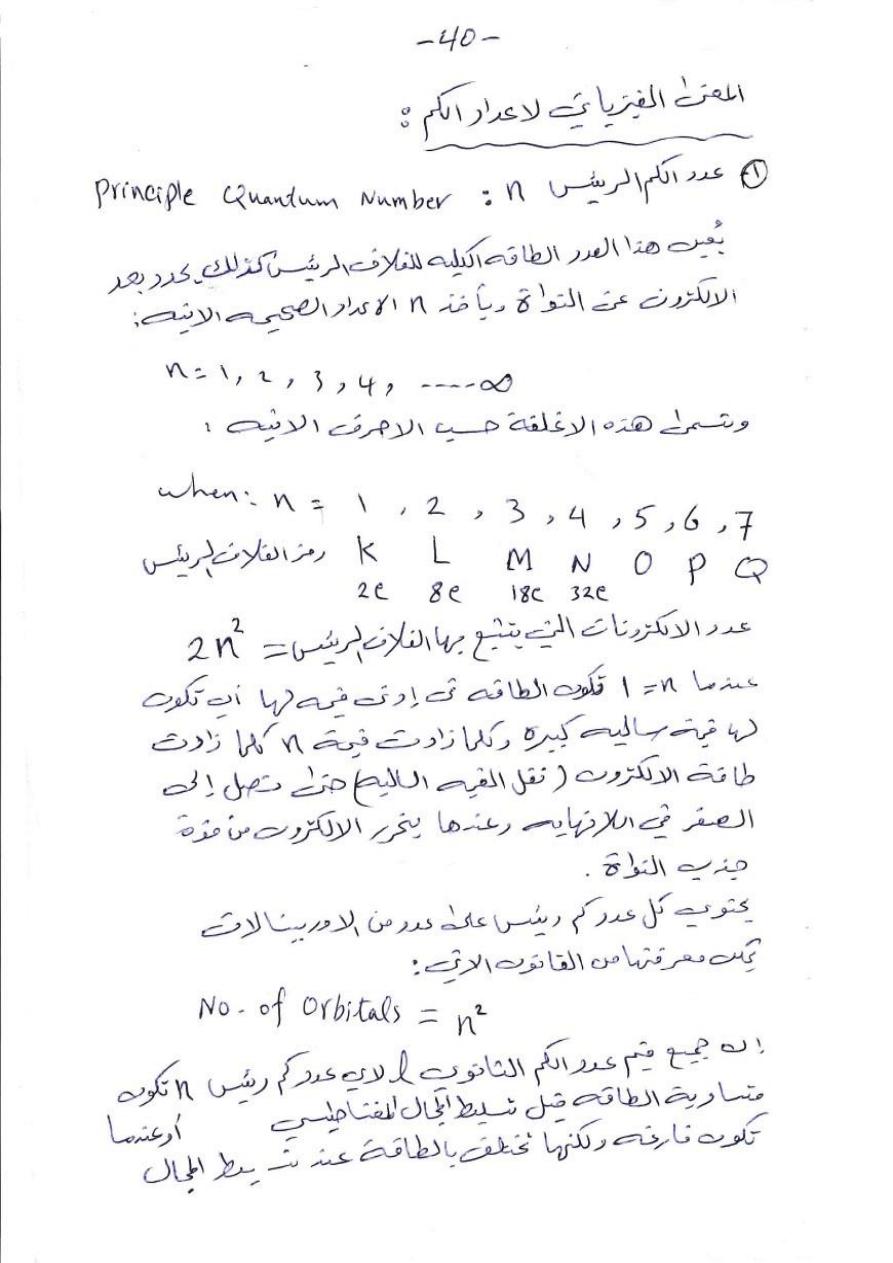 -40-
المعنى الفيزيائي لاعداد الكم :
① عدد الكم الرئيس n : Principle Quantum Number
يُعين هذا العدد الطاقه الكليه للغلاف الرئيس كذلك يحدد بعد
الالكترون عن النواة ويأخذ n الاعداد الصحيحه الاتيه:
n = 1, 2, 3, 4, ----- ∞
وتسمى هذه الاغلفة حسب الاحرف الاتيه :
when: n = 1 , 2 , 3 , 4 , 5 , 6 , 7
رمز الغلاف الرئيس K L M N O P Q
2e 8e 18e 32e
عدد الالكترونات التي يتشبع بها الغلاف الرئيس = 2n²
عندما n = 1 تكون الطاقه في ادنى قيمه لها أي تكون
لها قيمة سالبه كبيره وكلما زادت قيمة n كلما زادت
طاقة الالكترون (تقل القيمه السالبه) حتى تصل إلى
الصفر في اللانهايه وعندها يتحرر الالكترون من قوة
جذب النواة .
يحتوي كل عدد كم رئيس على عدد من الاوربيتالات
يمكن معرفتها من القانون الاتي:
No. of Orbitals = n²
إن جميع قيم عدد الكم الثانوي l لاي عدد كم رئيس n تكون
متساوية الطاقه قبل تسليط المجال المغناطيسي أو عندما
تكون فارغه ولكنها تختلف بالطاقة عند تسليط المجال